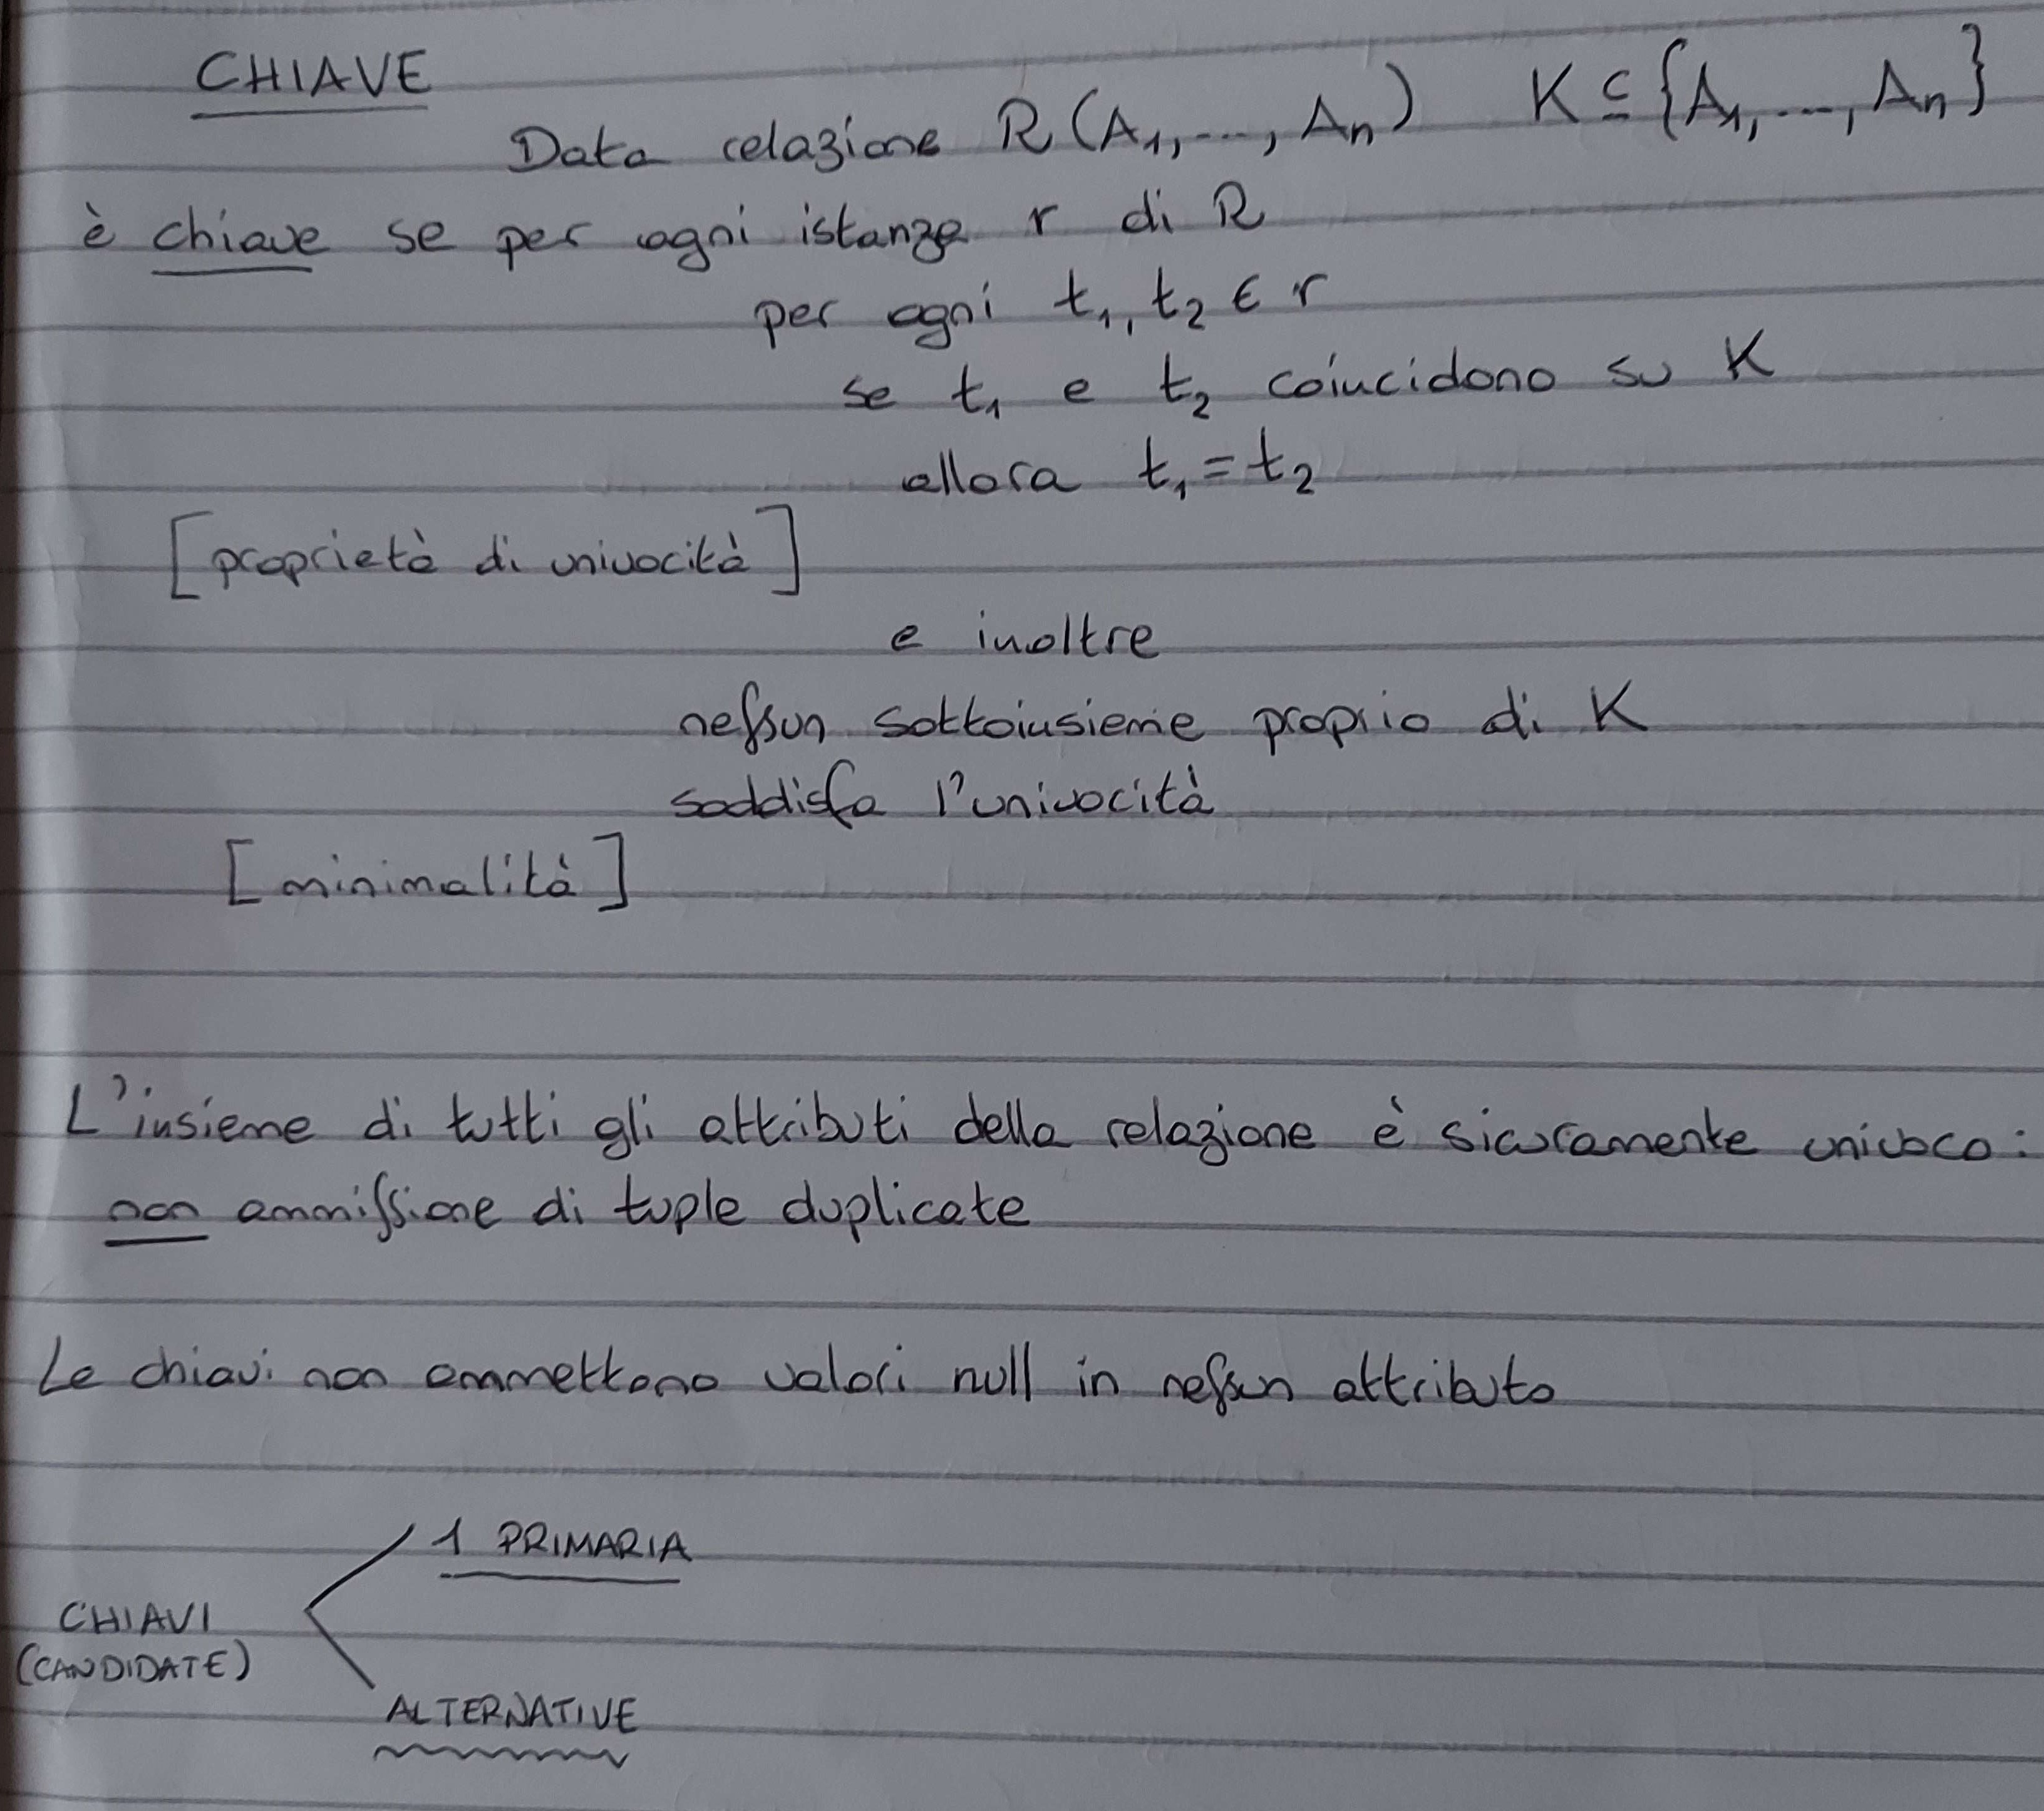 CHIAVE
Data relazione R(A₁, ..., Aₙ) K ⊆ {A₁, ..., Aₙ}
è chiave se per ogni istanza r di R
per ogni t₁, t₂ ∈ r
se t₁ e t₂ coincidono su K
allora t₁ = t₂
[proprietà di univocità]
e inoltre
nessun sottoinsieme proprio di K
soddisfa l'univocità
[minimalità]
L'insieme di tutti gli attributi della relazione è sicuramente univoco:
non ammissione di tuple duplicate
Le chiavi non ammettono valori null in nessun attributo
1 PRIMARIA
CHIAVI
(CANDIDATE)
ALTERNATIVE